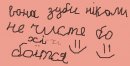 вона зуби ніколи
не чисте бо
хі
боїтся